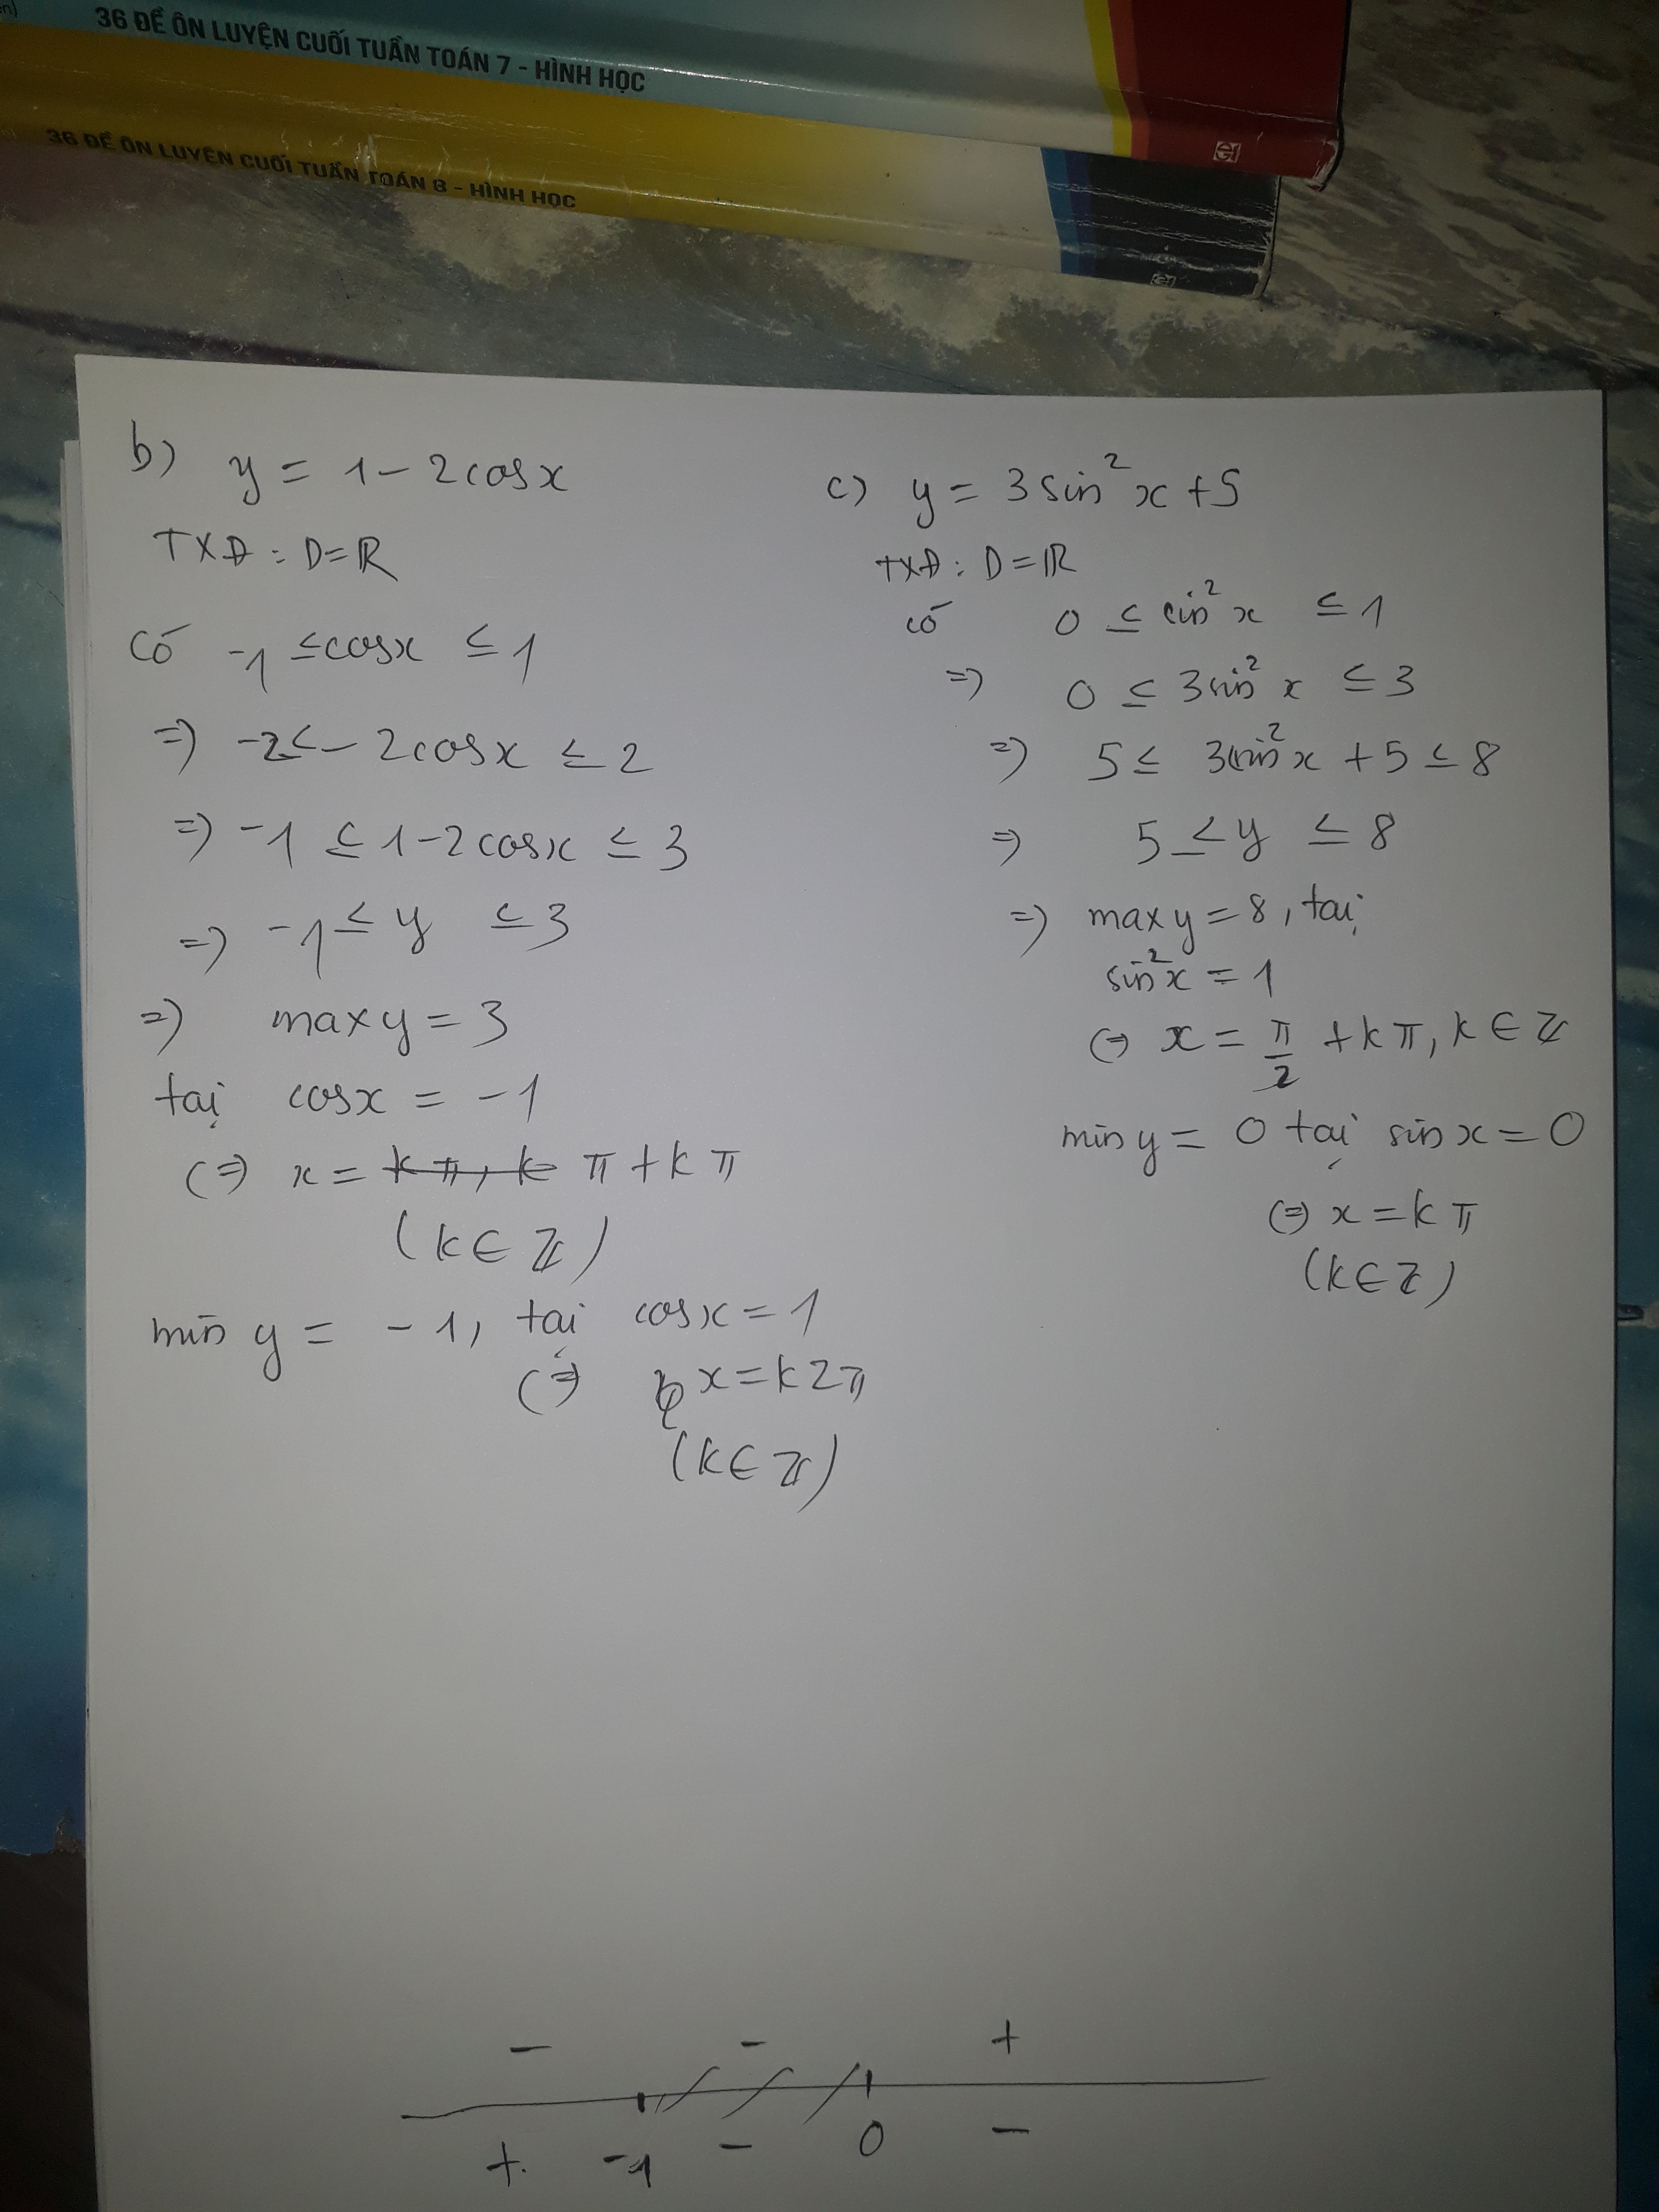 36 ĐỀ ÔN LUYỆN CUỐI TUẦN TOÁN 7 - HÌNH HỌC
36 ĐỀ ÔN LUYỆN CUỐI TUẦN TOÁN 8 - HÌNH HỌC
b) y = 1 - 2cosx
TXĐ : D = ℝ
Có -1 ≤ cosx ≤ 1
=> -2 ≤ - 2cosx ≤ 2
=> -1 ≤ 1 - 2cosx ≤ 3
=> -1 ≤ y ≤ 3
=> max y = 3
tại cosx = -1
<=> x = kπ, k π + kπ
(k ∈ ℤ)
min y = -1, tại cosx = 1
<=> x = k2π
(k ∈ ℤ)
c) y = 3sin²x + 5
TXĐ : D = ℝ
có 0 ≤ sin²x ≤ 1
=> 0 ≤ 3sin²x ≤ 3
=> 5 ≤ 3sin²x + 5 ≤ 8
=> 5 ≤ y ≤ 8
=> max y = 8, tại
sin²x = 1
<=> x = π/2 + kπ, k ∈ ℤ
min y = 0 tại sinx = 0
<=> x = kπ
(k ∈ ℤ)
- - +
+ -1 - 0 -